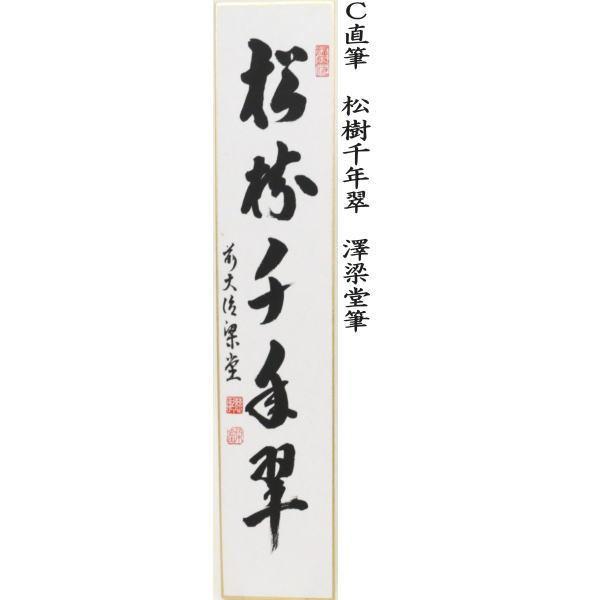 C直筆　松樹千年翠　澤梁堂筆
松樹千年翠
前大徳梁堂